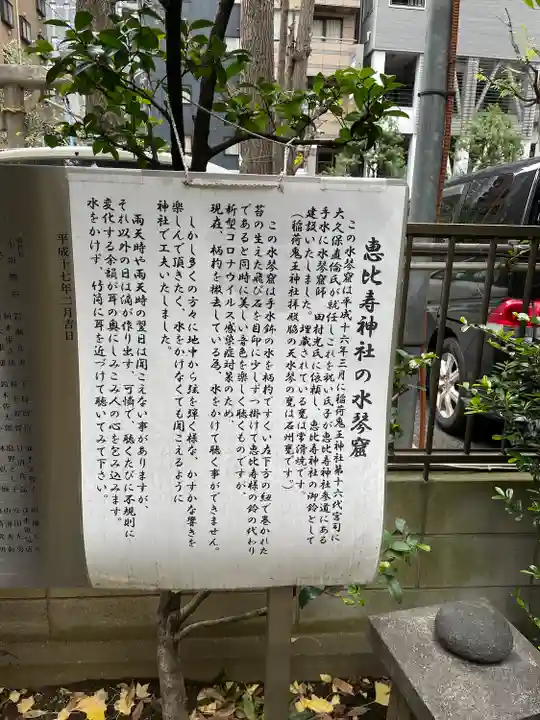 恵比寿神社の水琴窟
この水琴窟は平成十六年三月に稲荷鬼王神社第十六代宮司に
大久保直倫氏が就任しこれを祝い氏子が恵比寿神社参道にある
手水に水琴窟師、田村光氏に依頼し、恵比寿神社の御鈴として
建設いたしました。埋蔵されている甕は常滑焼です。
(稲荷鬼王神社拝殿脇の天水琴の甕は石州甕です。)
この水琴窟は手水鉢の水を柄杓ですくい左下方の紐で巻かれた
苔の生えた飛び石を目印に少しずつ掛けて恵比寿様の鈴の代わり
であると同時に美しい音色を楽しく聴くものですが、
新型コロナウイルス感染症対策のため、
現在、柄杓を撤去している為、水をかけて聴く事ができません。
しかし多くの方々に地中から弦を弾く様な、かすかな響きを
楽しんで頂きたく、水をかけなくても聞こえるように
神社で工夫いたしました。
雨天時や雨天時の翌日は聞こえない事がありますが、
それ以外の日は滴が作り出す、可憐で、聴くたびに不規則に
変化する余韻が耳の奥にしみこみ人の心を包み込みます。
水をかけず、竹筒に耳を近づけて聴いてみて下さい。
平成十七年二月吉日